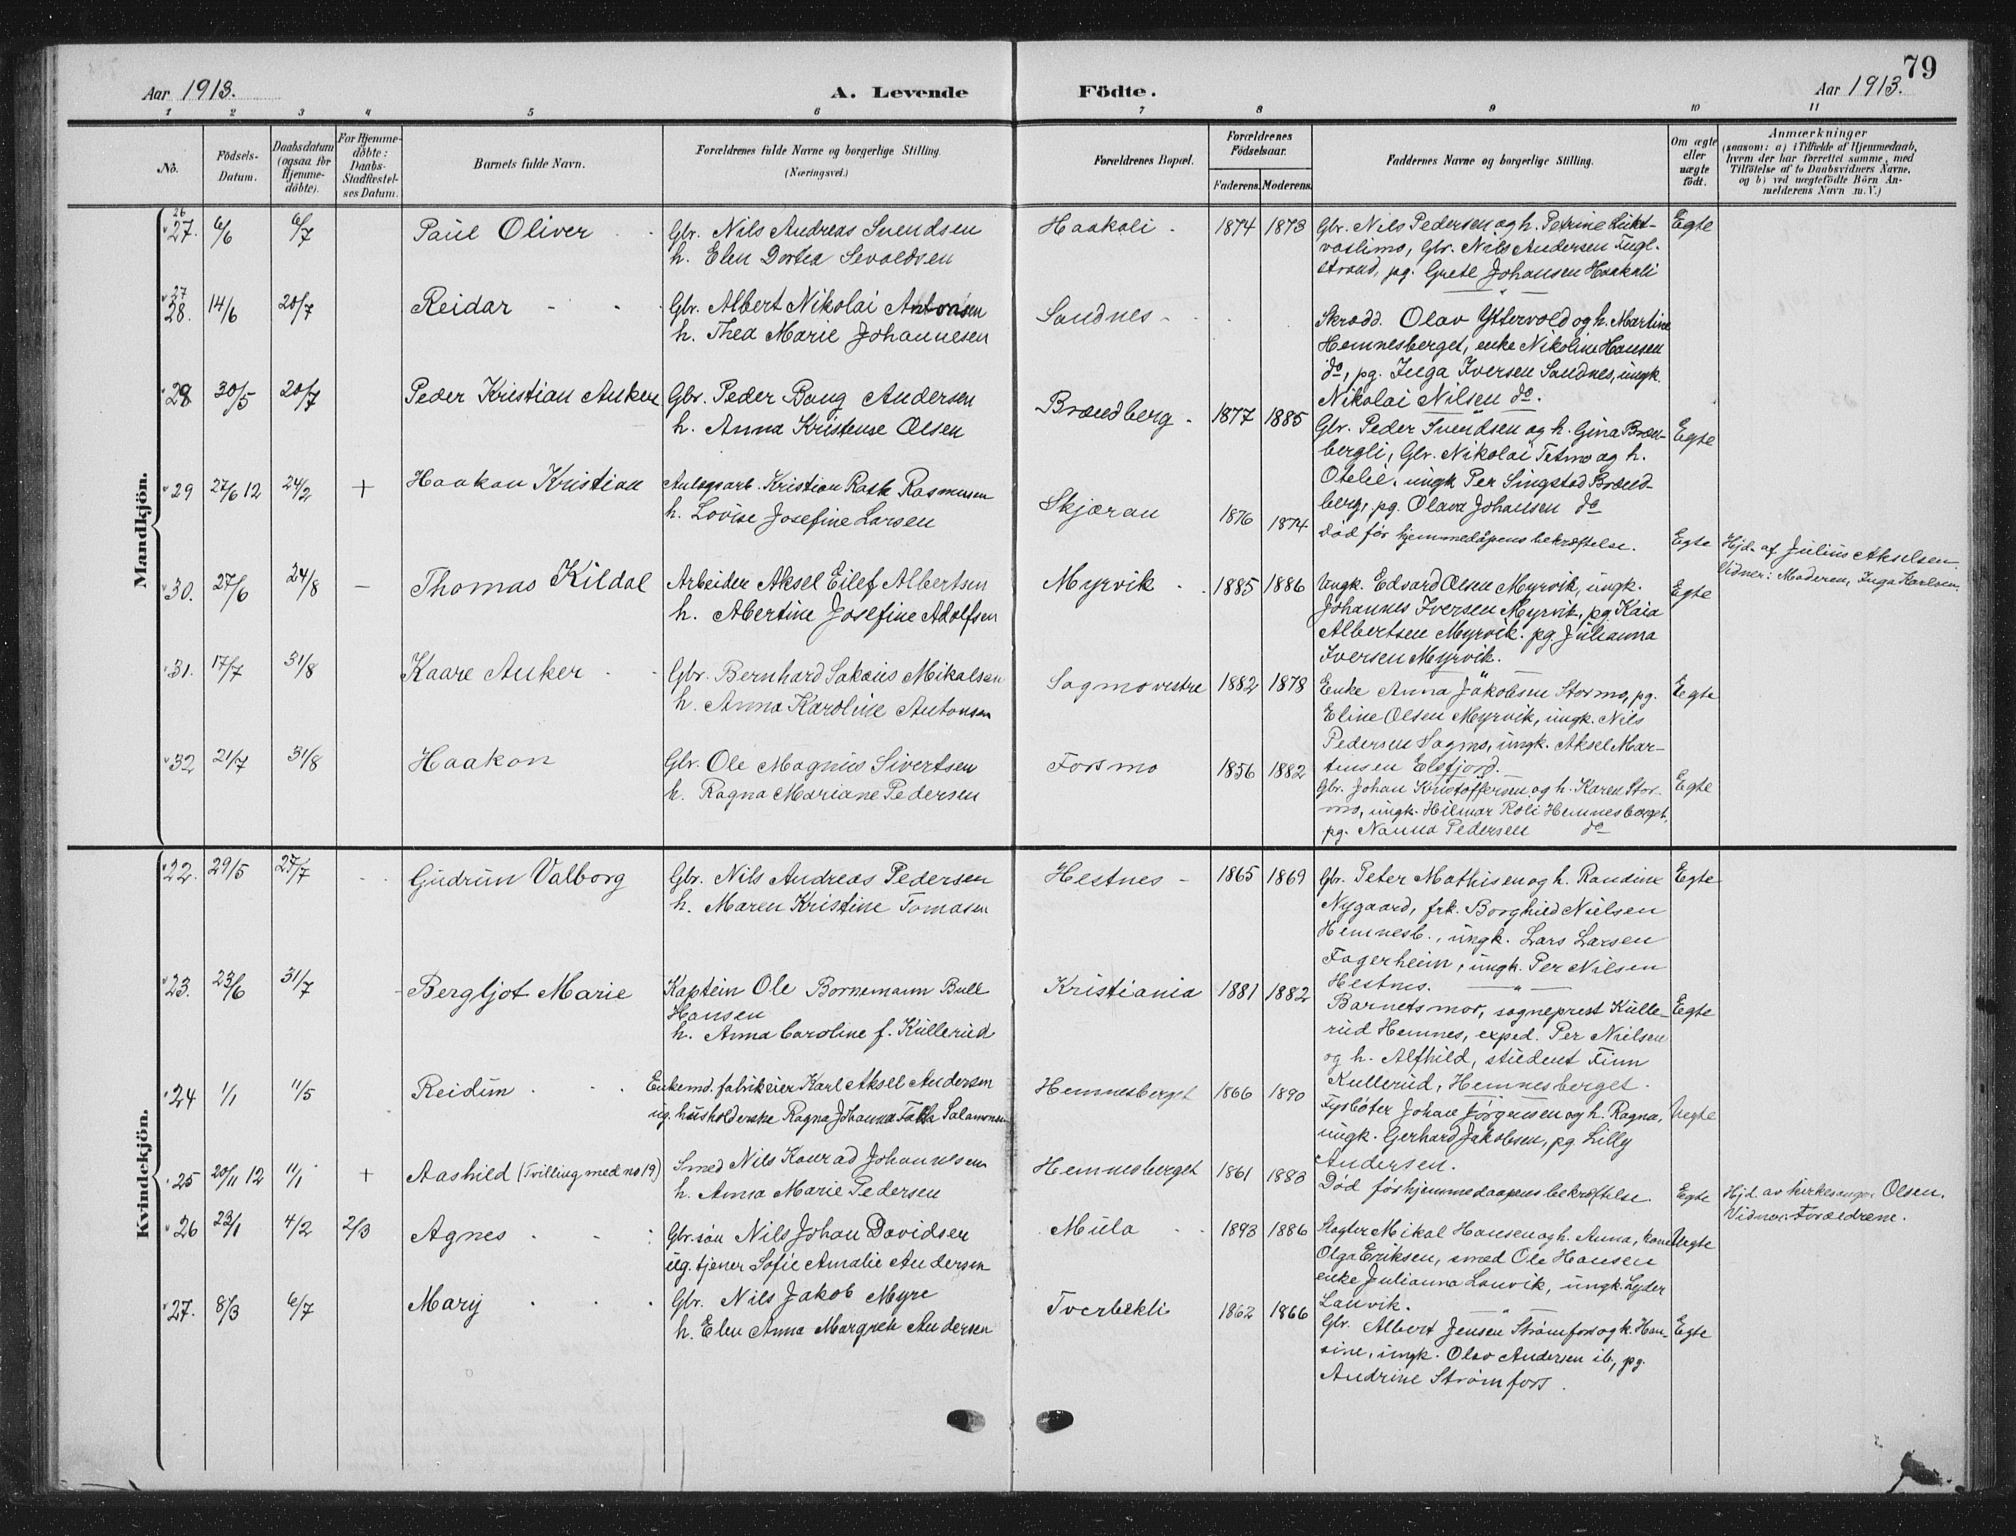 79
Aar 1913.
A. Levende
Födte.
Aar 1913.
1 2 3 4 5 6 7 8 9 10 11
No.
Födsels-Datum.
Daabsdatum (ogsaa for Hjemme-döbte).
For Hjemme-döbte: Daabs-Stadfæstel-ses Datum.
Barnets fulde Navn.
Forældrenes fulde Navne og borgerlige Stilling.
(Næringsvei.)
Forældrenes Bopæl.
Forældrenes Födselsaar.
Faderens. Moderens.
Faddernes Navne og borgerlige Stilling.
Om ægte eller uægte födt.
Anmærkninger
(saasom: a) i Tilfælde af Hjemmedaab, hvem der har forrettet samme, med Tilföielse af to Daabsvidners Navne, og b) ved uægtefödte Börn Anmelderens Navn m. V.)
Mandkjön.
26
27. 6/6 6/7 Paul Oliver
Gbr. Nils Andreas Svendsen
h. Elen Dortea Sevaldsen
Haakali 1874 1873
Gbr. Nils Pedersen og h. Petrine
vaslimo, Gbr. Nils Andersen Fugl-
strand, pg. Grete Johansen Haakali
Egte
27
28. 14/6 20/7 Reidar
Gbr. Albert Nikolai Antonsen
h. Thea Marie Johannesen
Sandnes
Skrædd. Olav Yttervold og h. Martine
Hemnesberget, enke Nikoline Hansen
do, pg. Inga Iversen Sandnes, ungk.
Nikolai Nilsen do.
28 30/5 20/7 Peder Kristian Anker
Gbr. Peder Bang Andersen
h. Anna Kristense Olsen
Brændberg 1877 1885
Gbr. Peder Svendsen og h. Gina Bræn-
bergli, Gbr. Nikolai Tetmo og h.
Otelie, ungk Per Singstad Brænd-
berg, pg. Olava Johansen do
Egte
29 27/6 12 24/2 + Haakon Kristian
Anlægsarb. Kristian Rask Rasmusen
h. Lovise Josefine Larsen
Skjæran 1876 1874
Død før hjemmedåpens bekræftelse.
Egte
Hjd. af Julius Akselsen.
Vidner: Moderen, Inga Karlsen.
30. 27/6 24/8 – Thomas Kildal
Arbeider Aksel Eilef Albertsen
h. Abertine Josefine Adolfsen
Myrvik 1885 1886
Ungk. Edvard Olsen Myrvik, ungk.
Johannes Iversen Myrvik, pg Kaia
Albertsen Myrvik. pg Julianna
Iversen Myrvik.
Egte
31. 17/7 31/8 Kaare Anker
Gbr. Bernhard Sakæus Mikalsen
h. Anna Karoline Antonsen
Sagmo vestre 1882 1878
Enke Anna Jakobsen Stormo, pg.
Eline Olsen Myrvik, ungk. Nils
Pedersen Sagmo, ungk. Aksel Mar-
tensen Elsfjord.
Egte
32 21/7 31/8 Haakon
Gbr. Ole Magnus Sivertsen
h. Ragna Mariane Pedersen
Forsmo 1856 1882
Gbr. Johan Kristoffersen og h. Karen Stor-
mo, ungk. Hilmar Roli Hemnesberget,
pg. Nanna Pedersen do
Egte
Kvindekjön.
22. 29/5 27/7 Gudrun Valborg
Gbr. Nils Andreas Pedersen
h. Maren Kristine Tomasen
Hestnes 1865 1869
Gbr. Peter Mathisen og h. Randine
Nygaard, frk. Borghild Nielsen
Hemnesb., ungk. Lars Larsen
Fagerheim, ungk. Per Nilsen
Hestnes.
Egte
23. 23/6 31/7 Bergljot Marie
Kaptein Ole Bornemann Bull
Hansen
h. Anna Caroline f. Kullerud
Kristiania 1881 1882
Barnets mor, sogneprest Kulle-
rud Hemnes, exped. Per Nielsen
og h. Alfhild, student Finn
Kullerud, Hemnesberget.
Egte
24 1/1 11/5 Reidun
Enkemd. fabrikeier Karl Aksel Andersen
ug. husholderske Ragna Johanna Salamonsen
Hemnesberget 1866 1890
Fyrbøter Johan Jørgensen og h. Ragna,
ungk. Gerhard Jakobsen, pg. Lilly
Andersen.
Uegte
25 20/11 12 1/1 + Aashild (Tvilling med no 19)
Smed Nils Konrad Johannesen
h. Anna Marie Pedersen
Hemnesberget 1861 1883
Død før hjemmedaapens bekræftelse.
Egte
Hjd. av kirkesanger Olsen.
Vidner: Forældrene.
26 23/1 4/2 2/3 Agnes
Gbr.søn Nils Johan Davidsen
ug. tjener Sofie Amalie Andersen
Mula 1893 1886
Slagter Mikal Hansen og h. Anna, kone
Olga Eriksen, smed Ole Hansen
enke Julianna Lauvik, ungk. Lyder
Lauvik.
Uegte
27. 8/3 6/7 Mary
Gbr. Nils Jakob Myre
h. Elen Anna Margrete Andersen
Tverbekli 1862 1866
Gbr. Albert Jensen Strømfors og k. Han-
sine, ungk. Olav Andersen ib, pg.
Andrine Strømfors.
Egte